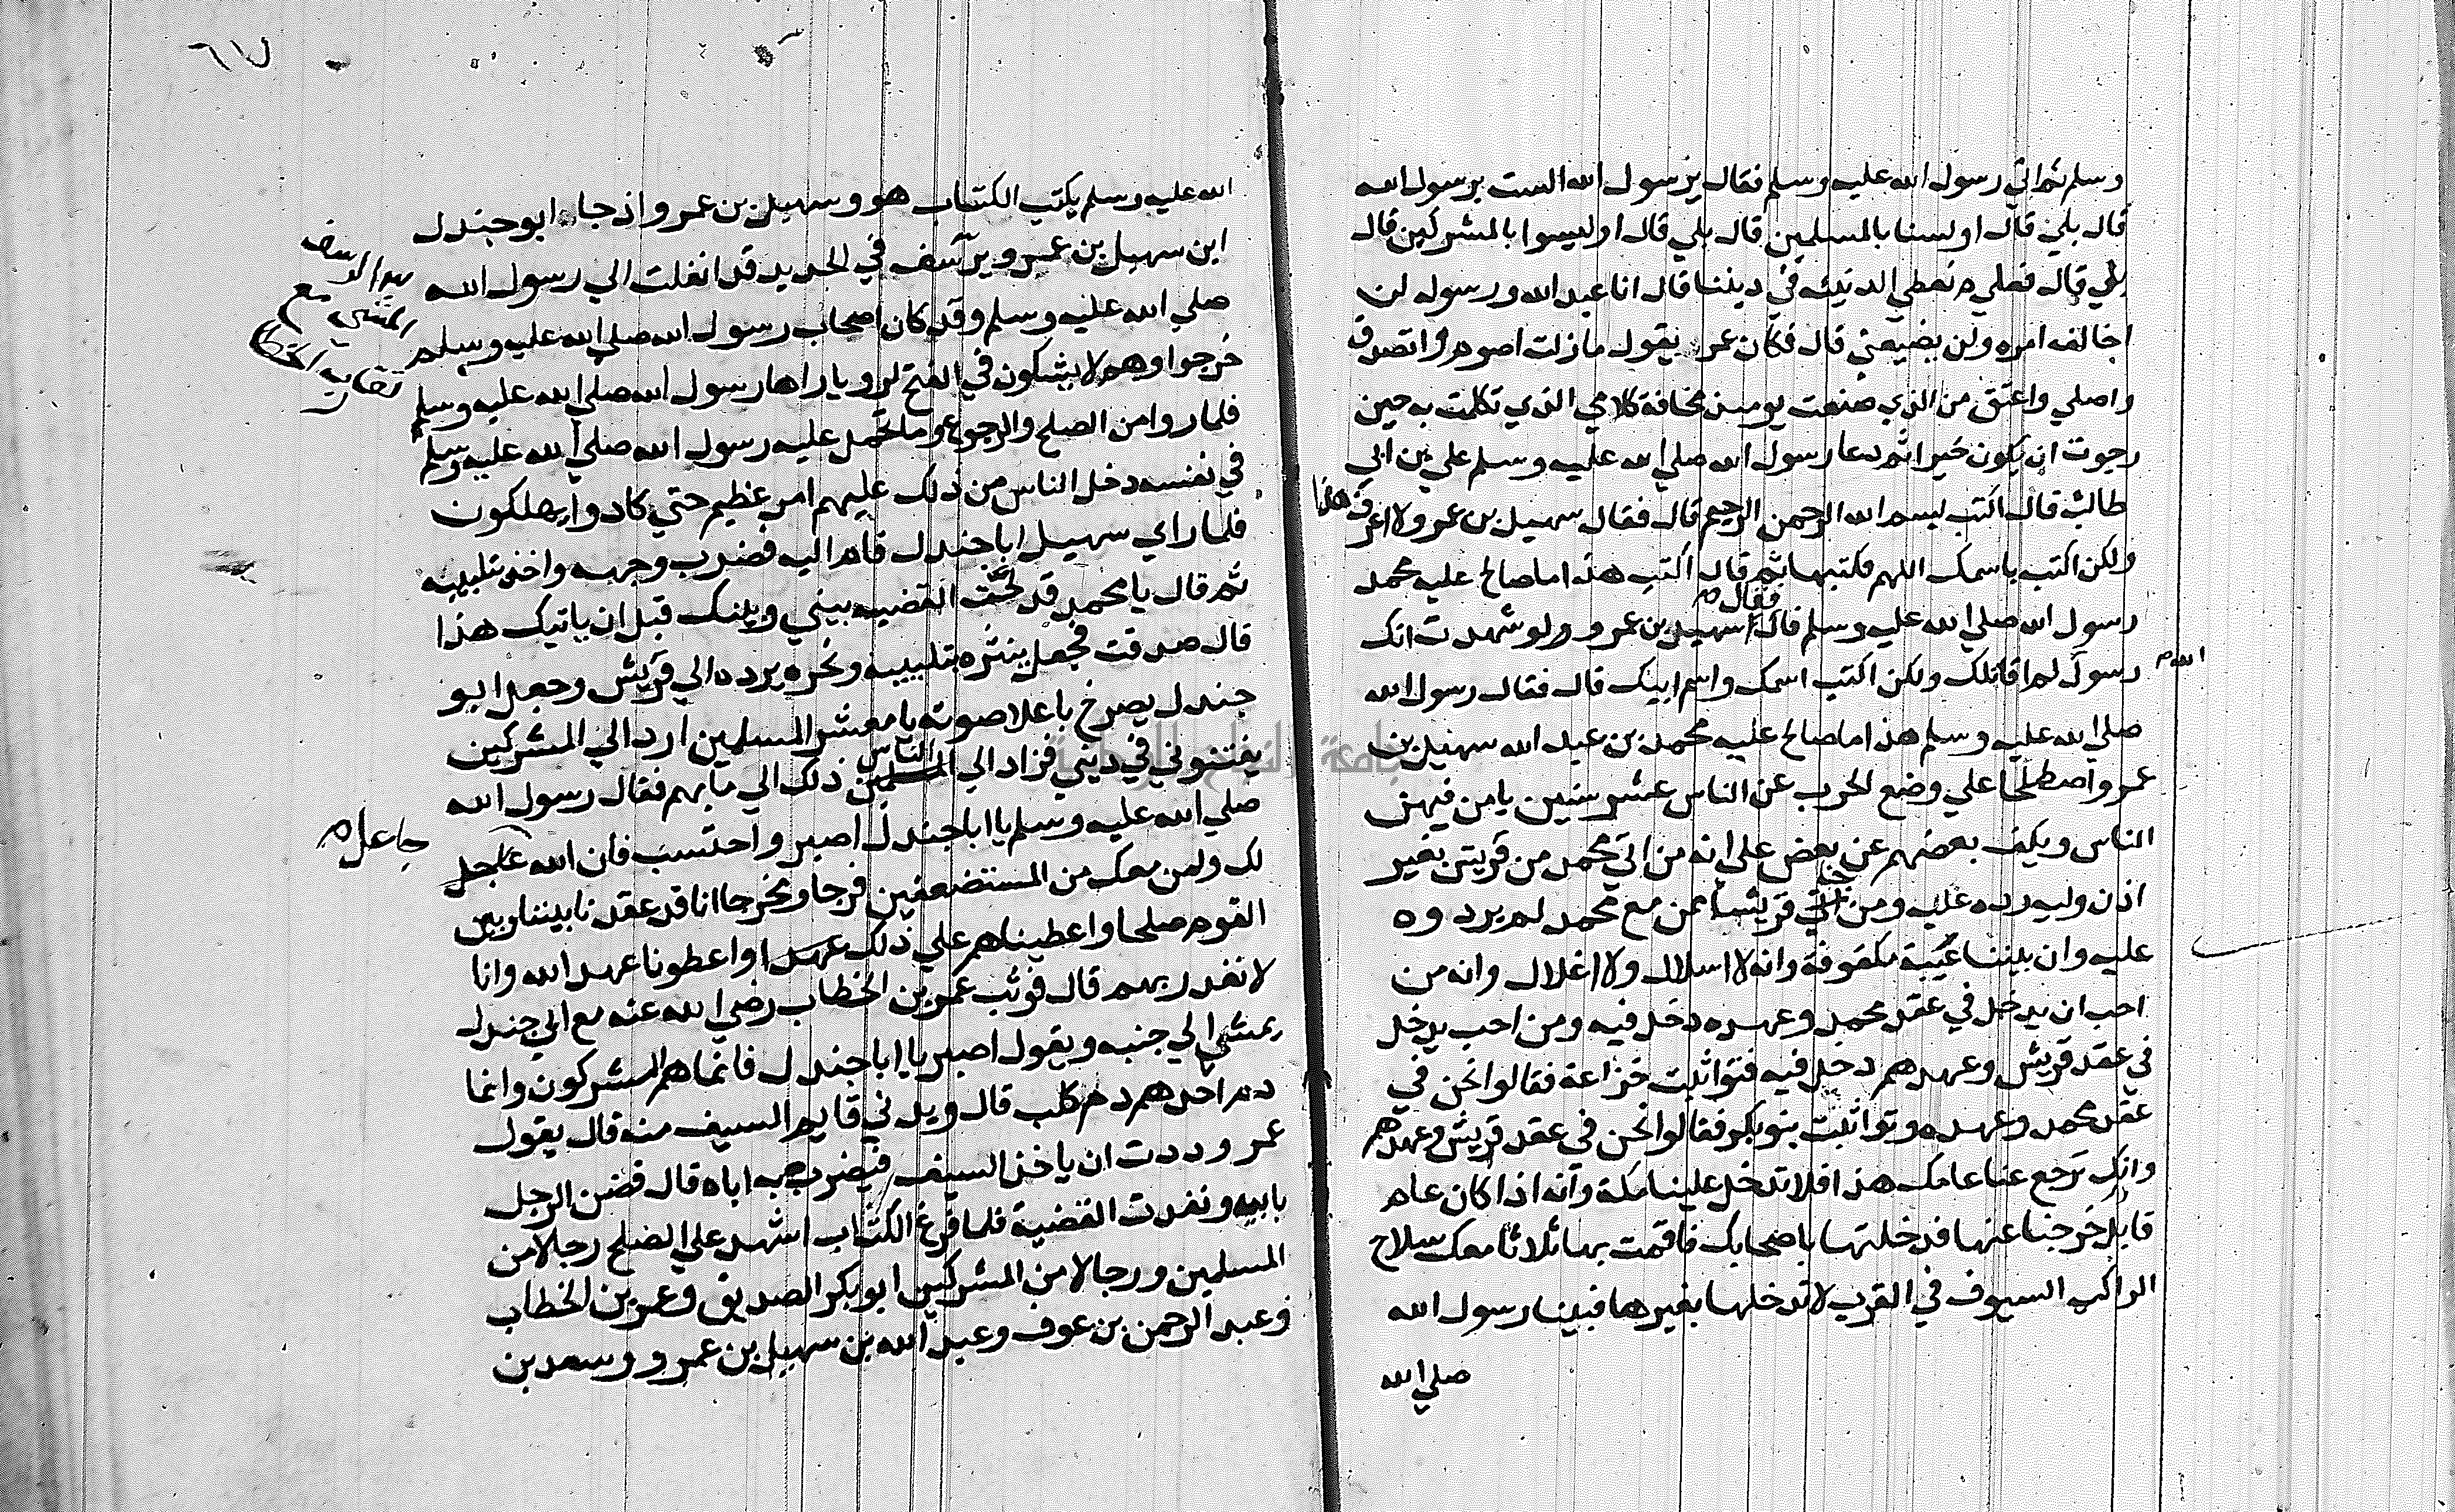 وسلم ثم اتي رسول الله عليه وسلم فقال يرسول الله الست برسول الله
قال بلي قال اولسنا بالمسلمين قال بلي قال اوليسوا بالمشركين قال
بلي قال فعلي م نعطي الدنيئه في ديننا قال انا عبد الله ورسوله لن
اخالف امره ولن يضيعني قال فكان عمر يقول مازلت اصوم واتصدق
واصلي واعتق من الذي صنعت يوميذ مخافة كلامي الذي تكلمت به حين
رجوت ان يكون خيرا ثم دعا رسول الله صلي الله عليه وسلم علي بن ابي
طالب قال اكتب بسم الله الرحمن الرحيم قال فقال سهيل بن عمرو لا اعرف هذا
ولكن اكتب باسمك اللهم فكتبها ثم قال اكتب هذا ما صالح عليه محمد
رسول الله صلي الله عليه وسلم قال فقال سهيل بن عمرو ولو شهدت انك
رسول الله لم اقاتلك ولكن اكتب اسمك واسم ابيك قال فقال رسول الله
صلي الله عليه وسلم هذا ما صالح عليه محمد بن عبد الله سهيل بن
عمرو اصطلحا علي وضع الحرب عن الناس عشر سنين يامن فيهن
الناس ويكف بعضهم عن بعض علي انه من اتي محمد من قريش بغير
اذن وليه رده عليه ومن اتي قريشا ممن مع محمد لم يردوه
عليه وان بيننا عيبة مكفوفة وانه لا اسلال ولا اغلال وانه من
احب ان يدخل في عقد محمد وعهده دخل فيه ومن احب يدخل
في عقد قريش وعهدهم دخل فيه فتواثبت خزاعة فقالوا نحن في
عقد محمد وعهده وتواثبت بنو بكر فقالوا نحن في عقد قريش وعهدهم
وانك ترجع عنا عامك هذا فلا تدخل علينا مكة وانه اذا كان عام
قابل خرجنا عنها فدخلتها باصحابك فاقمت بها ثلاثا معك سلاح
الراكب السيوف في القرب لا تدخلها بغيرها فبينا رسول الله
صلي الله
الله عليه وسلم يكتب الكتاب هو وسهيل بن عمرو اذ جاء ابو جندل
ابن سهيل بن عمرو يرسف في الحديد قد انفلت الي رسول الله
صلي الله عليه وسلم وقد كان اصحاب رسول الله صلي الله عليه وسلم
خرجوا وهم لا يشكون في الفتح لرويا راها رسول الله صلي الله عليه وسلم
فلما روا من الصلح والرجوع وما تحمل عليه رسول الله صلي الله عليه وسلم
في نفسه دخل الناس من ذلك عليهم امر عظيم حتي كادوا يهلكون
فلما راي سهيل ابا جندل قام اليه فضرب وجهه واخذ تلبيبه
ثم قال يا محمد قد لجت القضيه بيني وبينك قبل ان ياتيك هذا
قال صدقت فجعل ينثره بتلبيبه ونحره يرده الي قريش وجعل ابو
جندل يصرخ باعلا صوته يا معشر المسلمين ارد الي المشركين
يفتنوني في ديني فزاد الناس ذلك الي ما بهم فقال رسول الله
صلي الله عليه وسلم يا ابا جندل اصبر واحتسب فان الله جاعل
لك ولمن معك من المستضعفين فرجا ومخرجا انا قد عقدنا بيننا وبين
القوم صلحا واعطيناهم علي ذلك عهدا واعطونا عهد الله وانا
لا نغدر بهم قال فوثب عمر بن الخطاب رضي الله عنه مع ابي جندل
يمشي الي جنبه ويقول اصبر يا ابا جندل فانما هم المشركون وانما
دم احدهم دم كلب قال ويدني قايم السيف منه قال يقول
عمر وددت ان ياخذ السيف فيضرب به اباه قال فضن الرجل
بابيه ونفدت القضية فلما فرغ الكتاب اشهد علي الصلح رجالا من
المسلمين ورجالا من المشركين ابو بكر الصديق وعمر بن الخطاب
وعبد الرحمن بن عوف وعبد الله بن سهيل بن عمرو وسعد بن